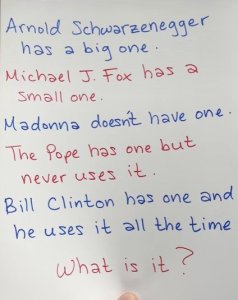 Arnold Schwarzenegger
has a big one.
Michael J. Fox has a
small one.
Madonna doesn't have one.
The Pope has one but
never uses it.
Bill Clinton has one and
he uses it all the time
What is it?